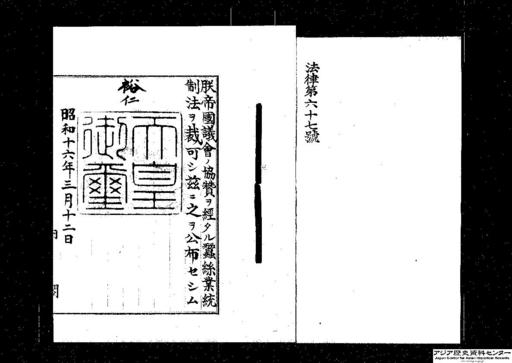 法律第六十七號
朕帝國議會ノ協贊ヲ經タル蠶絲業統
制法ヲ裁可シ茲ニ之ヲ公布セシム
裕仁
天皇
御璽
昭和十六年三月十二日
内
閣
アジア歴史資料センター
Japan Center for Asian Historical Records